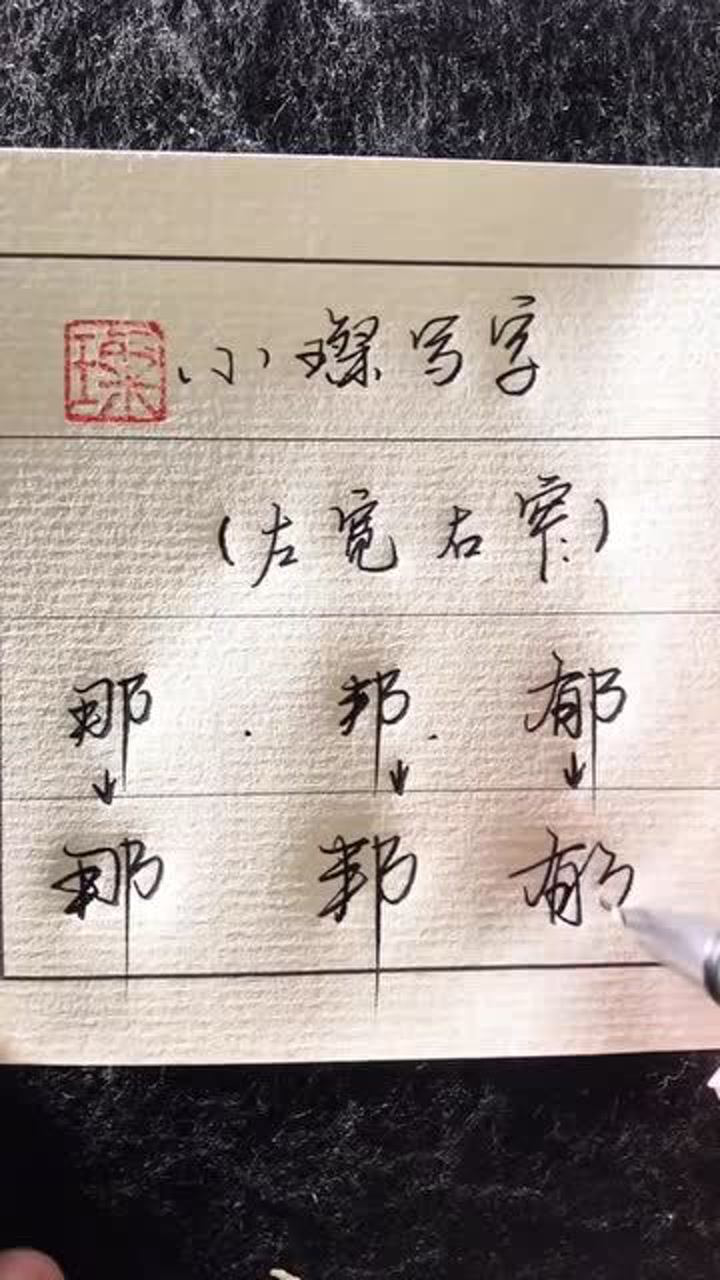 璨 小璨写字
(左宽右窄)
那 . 邦 . 郁
↓ ↓ ↓
那 邦 郁